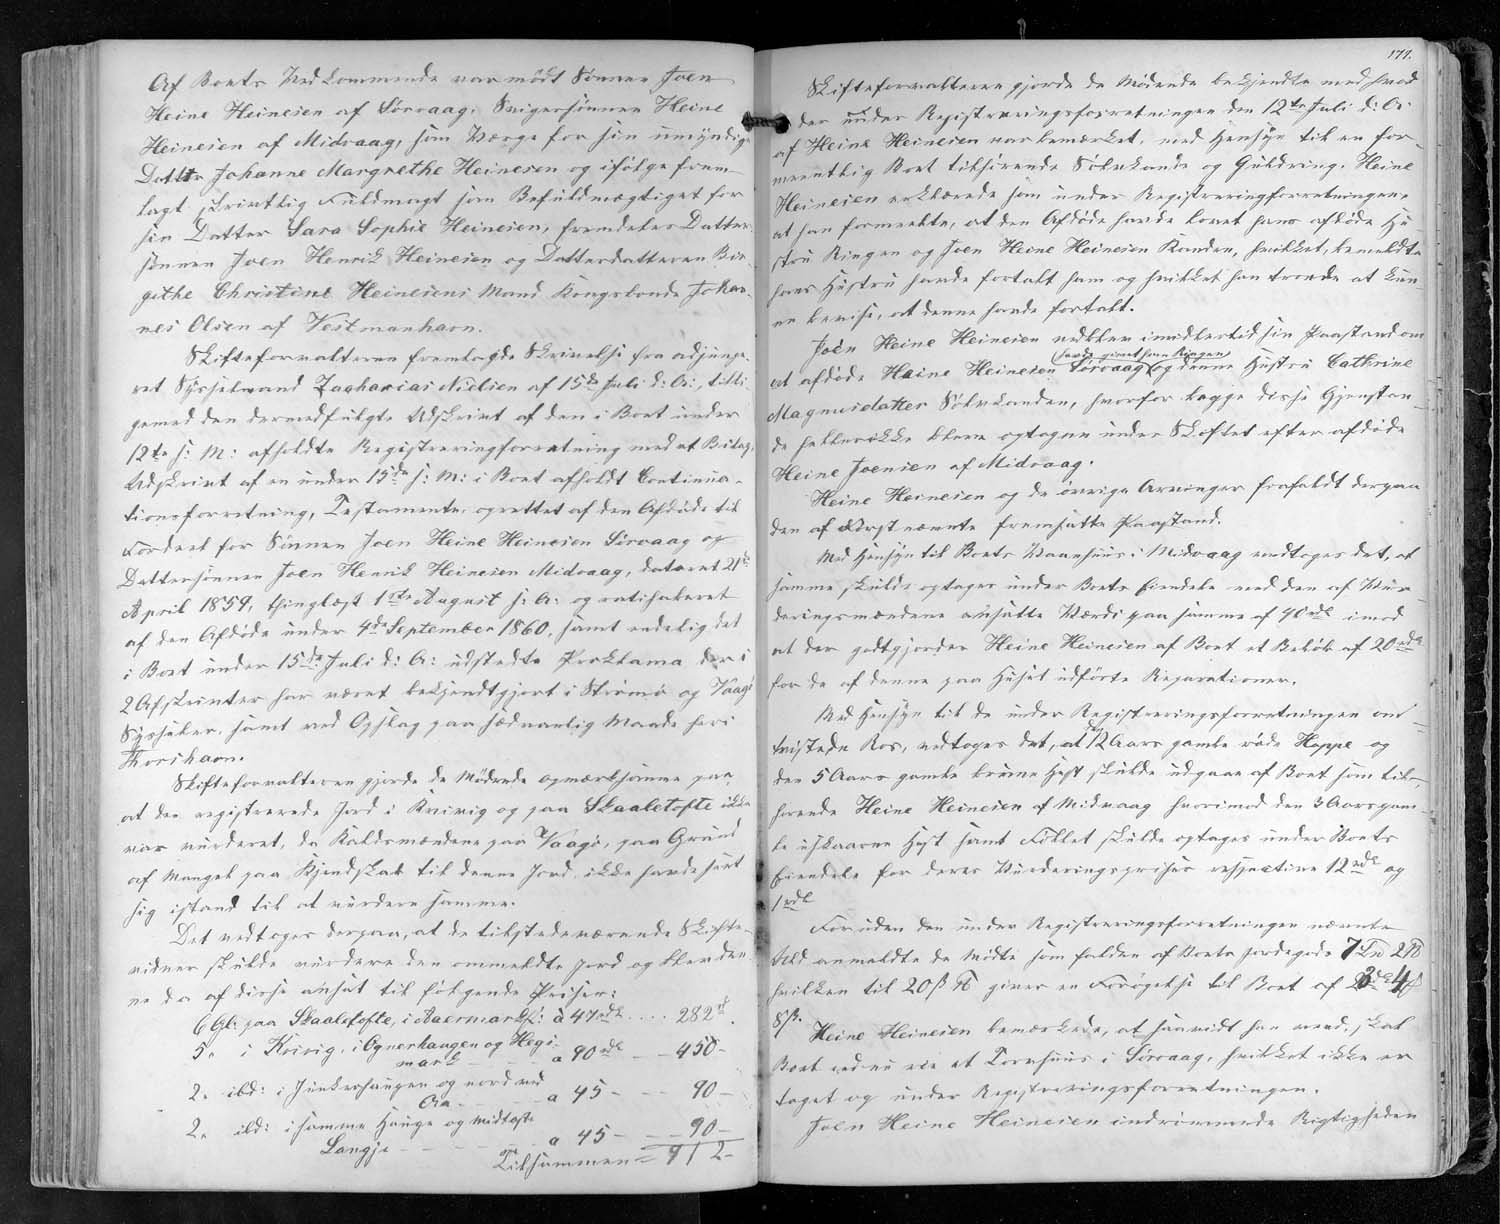 Af Boets Vedkommende var mødt Sønnen Joen
Heine Heinesen af Sørvaag, Svigersønnen Heine
Heinesen af Midvaag, som Værge for sin umyndige
Datter Johanne Margrethe Heinesen og ifølge frem-
lagt skriftlig Fuldmagt som Befuldmægtiget for
sin Datter Sara Sophie Heinesen, fremdeles Datter-
sønnen Joen Henrik Heinesen og Datterdatteren Bir-
githe Christine Heinesens Mand Kongsbonde Johan-
nes Olsen af Vestmanhavn.
Skifteforvalteren fremlagde Skrivelse fra adjunge-
ret Sysselmand Zacharias Nielsen af 15de Juli d: A:, tilli-
gemed den dermedfulgte Udskrivt af den i Boet under
12te s: M: afholdte Registreringsforretning med et Bilag,
Udskrivt af en under 15de s: M: i Boet afholdt Continua-
tionsforretning, Testamente, oprettet af den Afdøde til
Fordeel for Sønnen Joen Heine Heinesen Sørvaag og
Dattersønnen Joen Henrik Heinesen Midvaag, dateret 21de
April 1859, thinglæst 1ste August s: A: og ratihaberet
af den Afdøde under 4de September 1860, samt endelig det
i Boet under 15de Juli d: A: udstedte Proklama der i
2 Afskrivter har været bekjendtgjort i Strømø og Vaagø
Sysseler, samt ved Opslag paa sædvanlig Maade her i
Thorshavn.
Skifteforvalteren gjorde de Mødende opmærksomme paa,
at den registrerede Jord i Kvivig og paa Skaaletofte ikke
var vurderet, da Kaldsmændene paa Vaagø, paa Grund
af Mangel paa Kjendskab til denne Jord, ikke havde seet
sig istand til at vurdere samme.
Det vedtoges derpaa, at de tilstedeværende Skifte-
vidner skulde vurdere den ommeldte Jord og blev den-
ne da af disse ansat til følgende Priser:
6 Gl: paa Skaaletofte, i Aaermark: à 47 rdl .... 282 rdl.
5 " i Kvivig, i Ognerhaugen og Hegi-
mark - - a 90 rdl - - 450 -
2 " ibd: i Junkershaugen og nord ved
Aa - - - a 45 - - - 90 -
2 " ibd: i samme Hauge og Midtofte
Langje - - - - a 45 - - - 90 -
Tilsammen = 912 -
177.
Skifteforvalteren gjorde de Mødende bekjendte med hvad
der under Registreringsforretningen den 12te Juli d: A:
af Heine Heinesen var bemærket, med Hensyn til en for-
meentlig Boet tilhørende Sølvkande og Guldring. Heine
Heinesen erklærede som under Registreringsforretningen,
at han formeente, at den Afdøde havde lovet hans afdøde Hu-
stru Ringen og Joen Heine Heinesen Kanden, hvilket, bemeldte
hans Hustru havde fortalt ham og hvilket han troede at kun-
ne bevise, at denne havde fortalt.
Joen Heine Heinesen vedblev imidlertid sin Paastand om
havde givet ham Ringen
at afdøde Heine Heinesen Sørvaag og denne Hustru Cathrine
Magnusdatter Sølvkanden, hvorfor begge disse Gjenstan-
de hellerikke bleve optagne under Skiftet efter afdøde
Heine Joensen af Midvaag.
Heine Heinesen og de øvrige Arvinger frafaldt derpaa
den af Førstnævnte fremsatte Paastand.
Med Hensyn til Boets Vaanhuus i Midvaag vedtoges det, at
samme skulde optages under Boets Eiendele med den af Vur-
deringsmændene ansatte Værdi paa samme af 40 rdl imod
at der godtgjordes Heine Heinesen af Boet et Beløb af 20 rdl
for de af denne paa Huset udførte Reparationer.
Med Hensyn til de under Registreringsforretningen om-
tvistede Kos, vedtoges det, at den 12 Aars gamle røde Hoppe og
den 5 Aars gamle brune Hest skulde udgaae af Boet som til-
hørende Heine Heinesen af Midvaag hvorimod den 3 Aars gam-
le uskaarne Hest samt Føllet skulde optages under Boets
Eiendele for deres Vurderingspriser respective 12 rdl og
1 rdl
Foruden den under Registreringsforretningen nævnte
Uld anmeldte de Mødte som falden af Boets Jordegods 7 2 ℔
hvilken til 20 ß ℔ giver en Forøgelse til Boet af 3 4
8 ß.
Heine Heinesen bemærkede, at saavidt han veed, skal
Boet endnu eie et Tørvhuus i Sørvaag, hvilket ikke er
taget op under Registreringsforretningen.
Joen Heine Heinesen indrømmede Rigtigheden